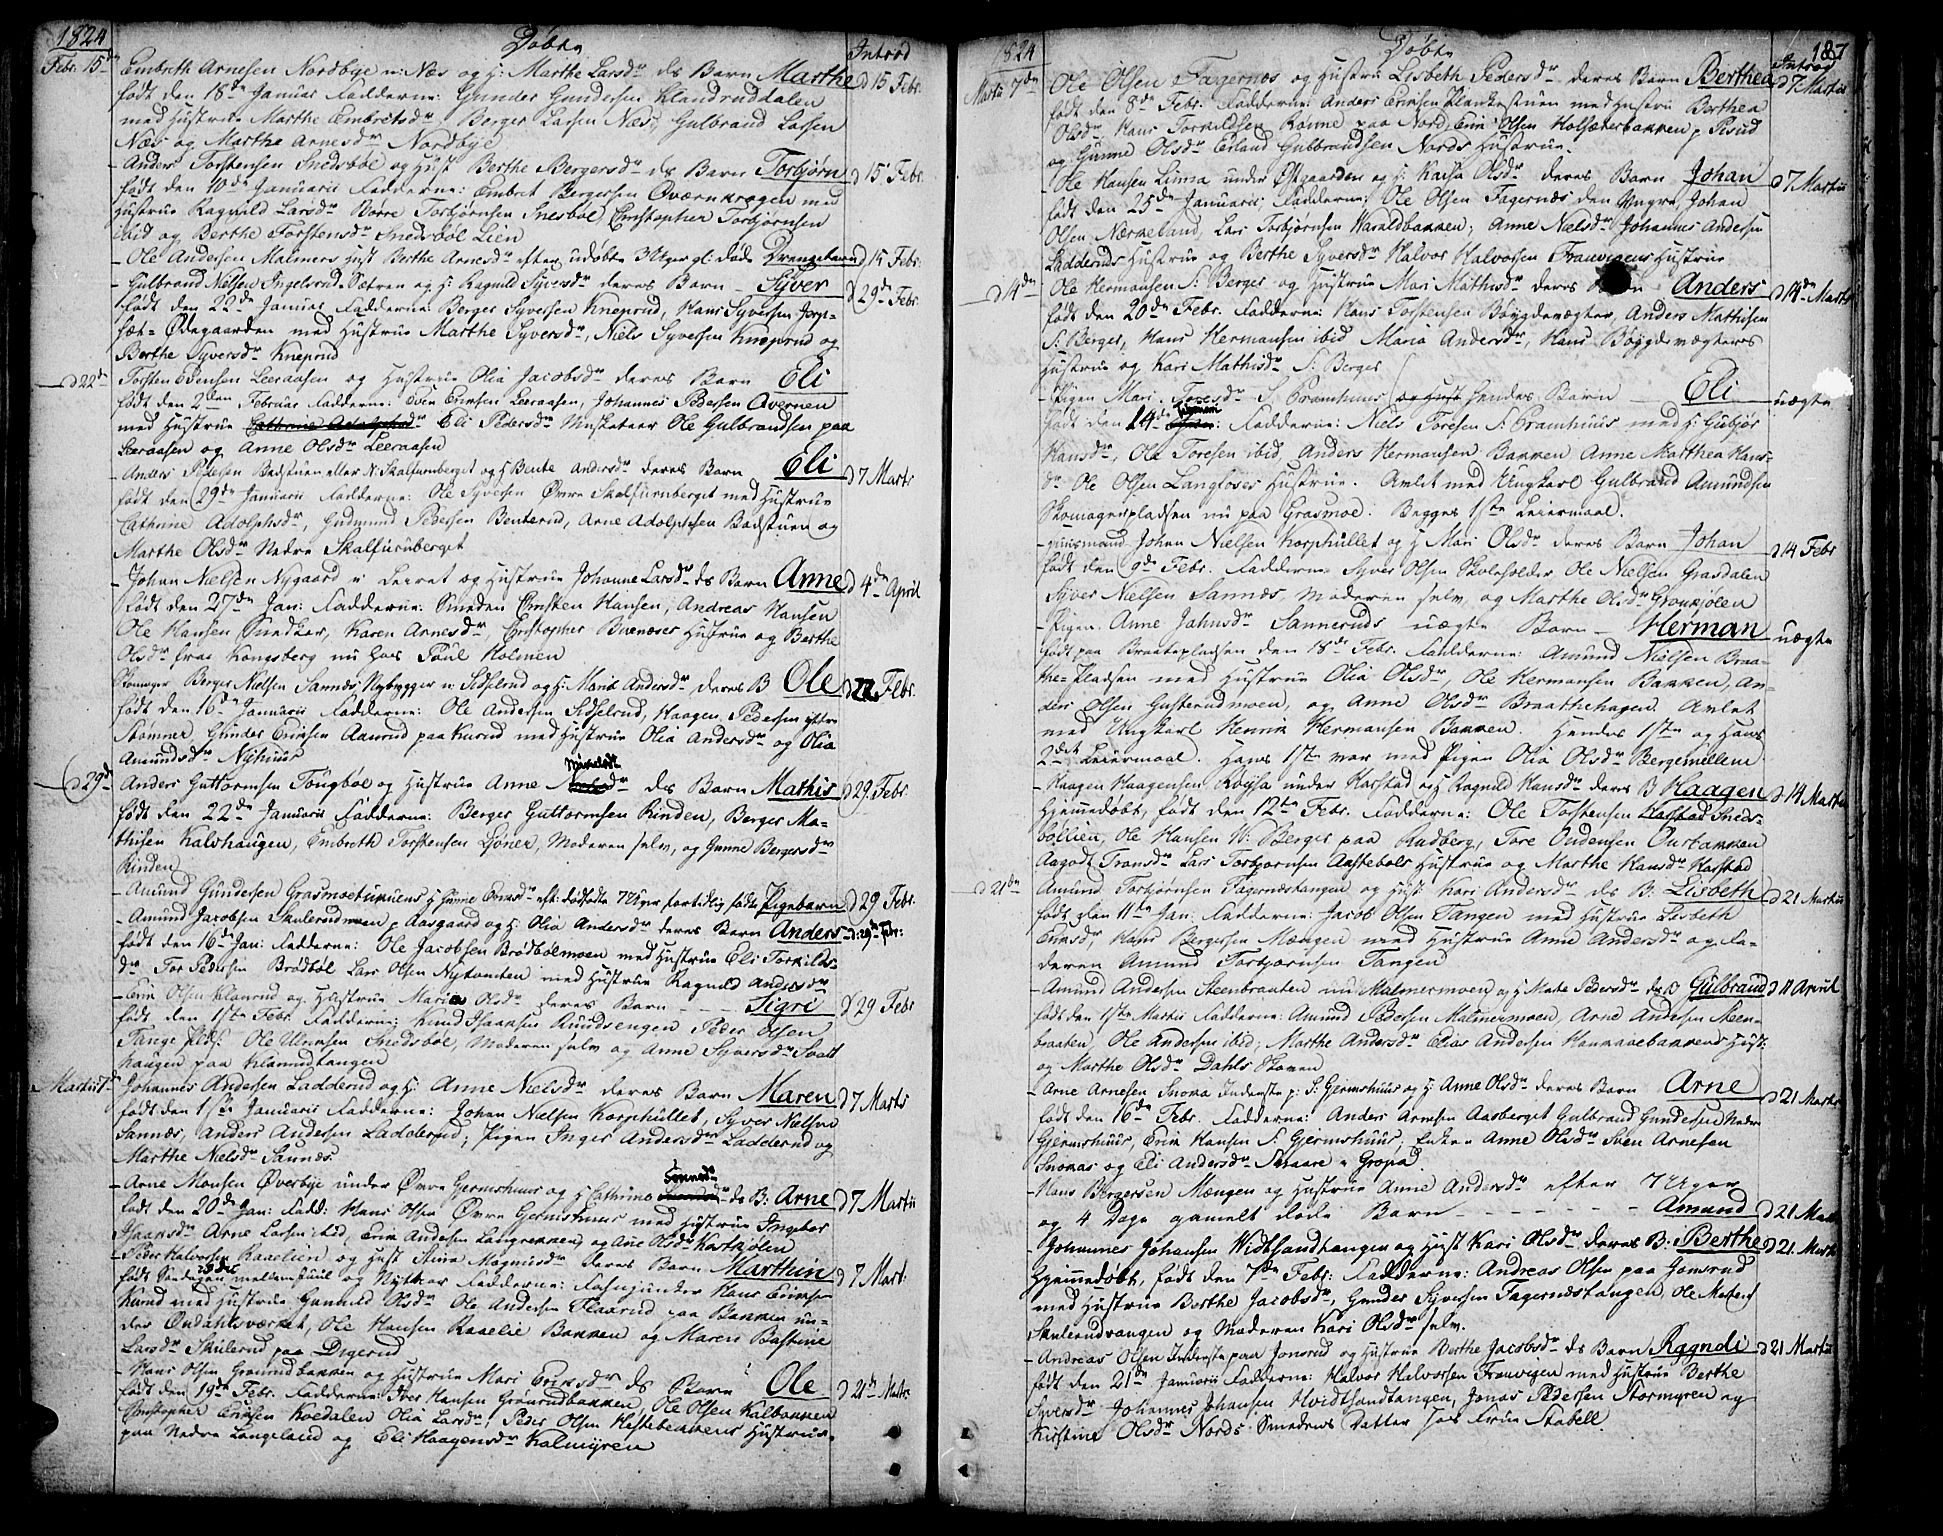 1824 Döbte Introd
Febr. 15de Embreth Arnesen Nordbye u: Næs og H: Marthe Larsdr ds Barn Marthe d 15 Febr.
födt den 18de Januar Fadderne: Gunder Gundersen Klandruddalen
med Hustrue Marthe Embretsdr, Berger Larsen Næs, Gulbrand Larsen
Næs og Marthe Arnesdr Nordbye
- Anders Torstensen Snedsböl og Hust Berthe Bergersdr ds Barn Torbjörn d 15 Febr.
födt den 10de Januarii Fadderne: Embret Bergersen Qværnkragen med
Hustrue Ragnild Larsdr Börre Torbjörnsen Snesböl Christopher Torbjörnsen
ibid og Berthe Torstensdr Snedsböl Lien
- Ole Andersen Malmers Hust Berthe Arnesdr efter udöbte 3 Uger gl: döde Drengebarn d 15 Febr.
- Gulbrand Nielsen Ingelsrud Setren og H: Ragnild Syversdr deres Barn - Syver d 29de Febr.
födt den 22de Januar Fadderne: Berger Syversen Kneprud, Hans Syversen
Ödegaarden med Hustrue Marthe Syversdr, Niels Syversen Kneprud og
Berthe Syversdr Kneprud
- d 22de Torsten Evensen Leeraasen og Hustrue Olia Jacobsdr deres Barn Eli
födt den 2den Februar Fadderne: Even Evensen Leeraasen, Johannes Pedersen Avernen
med Hustrue Eli Pedersdr Musketeer Ole Gulbrandsen paa
Leeraasen og Anne Olsdr Leeraasen
- Anders Pedersen Badstuen eller N: Skalfurnberget og H Bente Andersdr deres Barn Eli d 7 Marts
födt den 29de Januarii Fadderne: Ole Syversen Övre Skalfurnberget med Hustrue
Cathrine Adolphsdr, Gudmund Pedersen Benterud, Arne Adolphsen Badstuen og
Marthe Olsdr Nedre Skalfurnberget
- Johan Nielsen Nygaard u: Leeret og Hustrue Johanne Larsdr ds Barn Anne d 4de April
födt den 27de Jan: Fadderne: Smeden Christen Hansen, Andreas Hansen
Ole Hansen Snedker, Karen Arnesdr Christopher Buenæses Hustrue og Berthe
Olsdr fra Kongsberg nu hos Poul Holmen
Skomager Berger Nielsen Sannæs Nybygger u: Sidselrud og H: Marie Andersdr deres B Ole d 22 Febr.
födt den 16de Januarii Fadderne: Ole Andersen Sidselrud, Haagen Pedersen östre
Skömner, Gunder Evensen Aamrud paa Kurud med Hustrue Olia Andersdr og Olia
Amundsdr Nyhuus
- d 29de Anders Guttormsen Tougböl og Hustrue Anne dr ds Barn Mathis d 29 Febr.
födt den 22de Januarii Fadderne: Berger Guttormsen Rinden, Berger Ma-
thisen Kalvhaugen, Embreth Torstensen Lyöner, Moderen selv, og Gunne Bergersdr
Rinden
- Amund Gundersen Grasmoetuniens H Gunne Eriksdr eft: dödfödte 7 Uger fortidlig födte Pigebarn d 29 Febr.
- Amund Jacobsen Skulerudmoen p: Aasgaard og H: Olia Andersdr deres Barn Anders d: 29de febr:
födt den 16de Jan: Fadderne: Ole Jacobsen Brödbolmoen med Hustrue Eli Torkilds-
dr Tor Pedersen Brödböl Lars Olsen Nytomten med Hustrue Ragnild Andersdr
- Erik Olsen Klanrud og Hustrue Maria Olsdr deres Barn - Sigri d 29 Febr
födt den 1ste Febr. Fadderne: Knud Isaaksen Rundsengen Peder Olsen
Tange Plds: Ole Ulriksen Snedsböl, Moderen selv og Anne Syversdr Svatt
haugen paa Klanrudtangen
Martii 7de Johannes Andersen Ladderud og H: Anne Nielsdr deres Barn Maren d 7 Marts
födt den 1ste Januarii Fadderne: Johan Nielsen Korphullet, Syver Nielsen
Sannæs, Anders Andersen Ladderud; Pigen Inger Andersdr Ladderud og
Marthe Nielsdr Sannæs
- Arne Monsen Överbye under Övre Gjermshuus og H Cathrine dr ds B: Arne d 7 Martii
födt den 20de Jan: Fadd: Hans Olsen Övre Gjermshuus med Hustrue Ingebor
Isaksdr Arne Larsen ibid, Erik Andersen Langrekken, og Ane Olsdr Kortkjölen
- Peder Halvorsen Raaelien og Hust Stina Magnusdr deres Barn Marthin d 7 Mart:
födt Söndagen mellem Juul og Nyttaar Fadderne: Faenjunker Hans Erichsen
Kurud med Hustrue Gunnild Olsdr Ole Andersen Flaarud paa Bakken un-
der Öudahlsværket, Ole Hansen Raaelie Bakken og Maren Bastine
Larsdr Skulerud paa Digerud
- Hans Olsen Grönrudbakken og Hustrue Mari Eriksdr ds Barn Ole d 21de Marts
födt den 19de Febr. Fadderne: Iver Hansen Grönrudbakken, Ole Olsen Kalbakken
Christopher Eriksen Koedalen Olia Larsdr, Peder Olsen Hestebekkens Hustrue
paa Nedre Langeland og Eli Haagensdr Kalmyren
1824 Döbte 187
Introd
Martii 7de Ole Olsen Fagernæs og Hustrue Lisbeth Pedersdr deres Barn Berthea d 7 Martii
födt den 8de Febr. Fadderne: Anders Eriksen Plankestuen med Hustrue Berthea
Olsdr, Hans Torkildsen Rönne paa Nord, Erik Olsen Holsæterbakken p Disud
og Gunne Olsdr Erland Gulbrandsen Nords Hustrue.
- Ole Hansen Linna under Östgaarden og H: Kaisa Olsdr deres Barn Johan d 7 Martii
födt den 25de Januarii Fadderne: Ole Olsen Fagernæs den Yngre Johan
Olsen Nærkeland, Lars Torbjörnsen Haraldbakken; Anne Nielsdr Johannes Andersen
Ladderuds Hustrue og Berthe Syversdr Halvor Halvorsen Frauvigens Hustrue
- d 14de Ole Hermansen S: Berger og Hustrue Mari Mathisdr deres Anders d 14de Marts
födt den 20de Febr. Fadderne: Hans Torstensen Böygdevægter, Anders Mathisen
S: Berger, Hans Hermansen ibid Maria Andersdr, Hans Böygdevægteres
Hustrue og Kari Mathisdr S: Berger
- Pigen Mari Toresdr S. Cramhuus hendes Barn - Eli uægte
födt den 14de Fadderne: Niels Toresen S: Cramhuus med H: Gubjör
Hansdr, Ole Toresen ibid, Anders Hermansen Bakken Anne Marthea Hans-
dr Ole Olsen Langloses Hustrue. Avlet med Ungkarl Gulbrand Amundsen
Skomagerpladsen nu paa Grasmoe. Begges 1ste Leiermaal.
- Huusmand Johan Nielsen Korphullet og H Mari Olsdr deres Barn Johan d 14 Febr
födt den 9de Febr. Fadderne Syver Olsen Skoleholder Ole Nielsen Grasdalen
Syver Nielsen Sannæs, Moderen selv og Marthe Olsdr Gronkjölen
- Pigen Anne Johnsdr Sanneruds uægte Barn - Herman uægte
födt paa Braatepladsen den 18de Febr. Fadderne: Amund Nielsen Braa-
the-Pladsen med Hustrue Olia Olsdr, Ole Hermansen Bakken, An-
ders Olsen Gusterudmoen, og Anne Olsdr Braathehagen. Avlet
med Ungkarl Henrik Hermansen Bakken. Hendes 1ste og Hans
2det Leiermaal. Hans 1ste var med Pigen Olia Olsdr Bergemellem
- Haagen Haagensen Röysa under Harstad og H Ragnild Hansdr deres B Haagen d 14 Martii
Hjemmedöbt, födt den 12te Febr. Fadderne: Ole Torstensen Sneds-
böllien, Ole Hansen N: Berger paa Rudberg, Tore Ondensen Ourbakken
Aagodt Fransdr Lars Torbjörnsen Aastebols Hustrue og Marthe Hansdr Harstad
- d 21de Amund Torbjörnsen Fagernæstangen og Hust Kari Andersdr ds B: Lisbeth d 21 Martii
födt den 11te Jan: Fadderne: Jacob Olsen Tangen med Hustrue Lisbeth
Eriksdr, Hans Bergersen Mængen med Hustrue Anne Andersdr og Fa-
deren Amund Torbjörnsen Tangen
- Amund Andersen Steenbraaten nu Malmermoen og H Marte Pedersdr ds B Gulbrand d 11 April
födt den 1ste Martii Fadderne: Amund Pedersen Malmermoen, Arne Andersen Steen-
braaten, Ole Andersen ibid, Marthe Andersdr Elias Andersen Hannaaebakkens Hust:
og Marthe Olsdr Dahls Skoven
- Arne Arnesen Snoka Inderste p: S: Gjermshuus og H: Anne Olsdr deres Barn Arne d 21 Marts
födt den 16de Febr. Fadderne: Anders Arnesen Aasberget Gulbrand Gundersen Nedre
Gjermshuus, Erik Hansen S. Gjermshuus, Enken Anne Olsdr Sven Arnesen
Snokas og Eli Andersdr Skaare Gropa
- Hans Bergersen Mængen og Hustrue Anne Andersdr efter 7 Uger
og 4 Dage gamelt döde Barn - - - - - - Amund d 21 Mart
- Johannes Johansen Widtsandtangen og Hust Kari Olsdr deres B: Berthe d 21 Marts
Hjemmedöbt, födt den 7de Febr: Fadderne: Andreas Olsen paa Jonsrud
med Hustrue Berthe Jacobsdr, Gunder Syversen Fagernæstangen, Ole
Skulerudvangen og Moderen Kari Olsdr selv.
- Andreas Olsen Inderste paa Jonsrud og Hustrue Berthe Jacobsdr ds Barn Ragndi d 21 Martii
födt den 21de Januarii Fadderne: Halvor Halvorsen Frauvigen med Hustrue Berthe
Syversdr Johannes Johansen Hvidtsandtangen, Jonas Pedersen Stormyren og
Kirstine Olsdr Nords Smedens Datter hos Frue Stabell